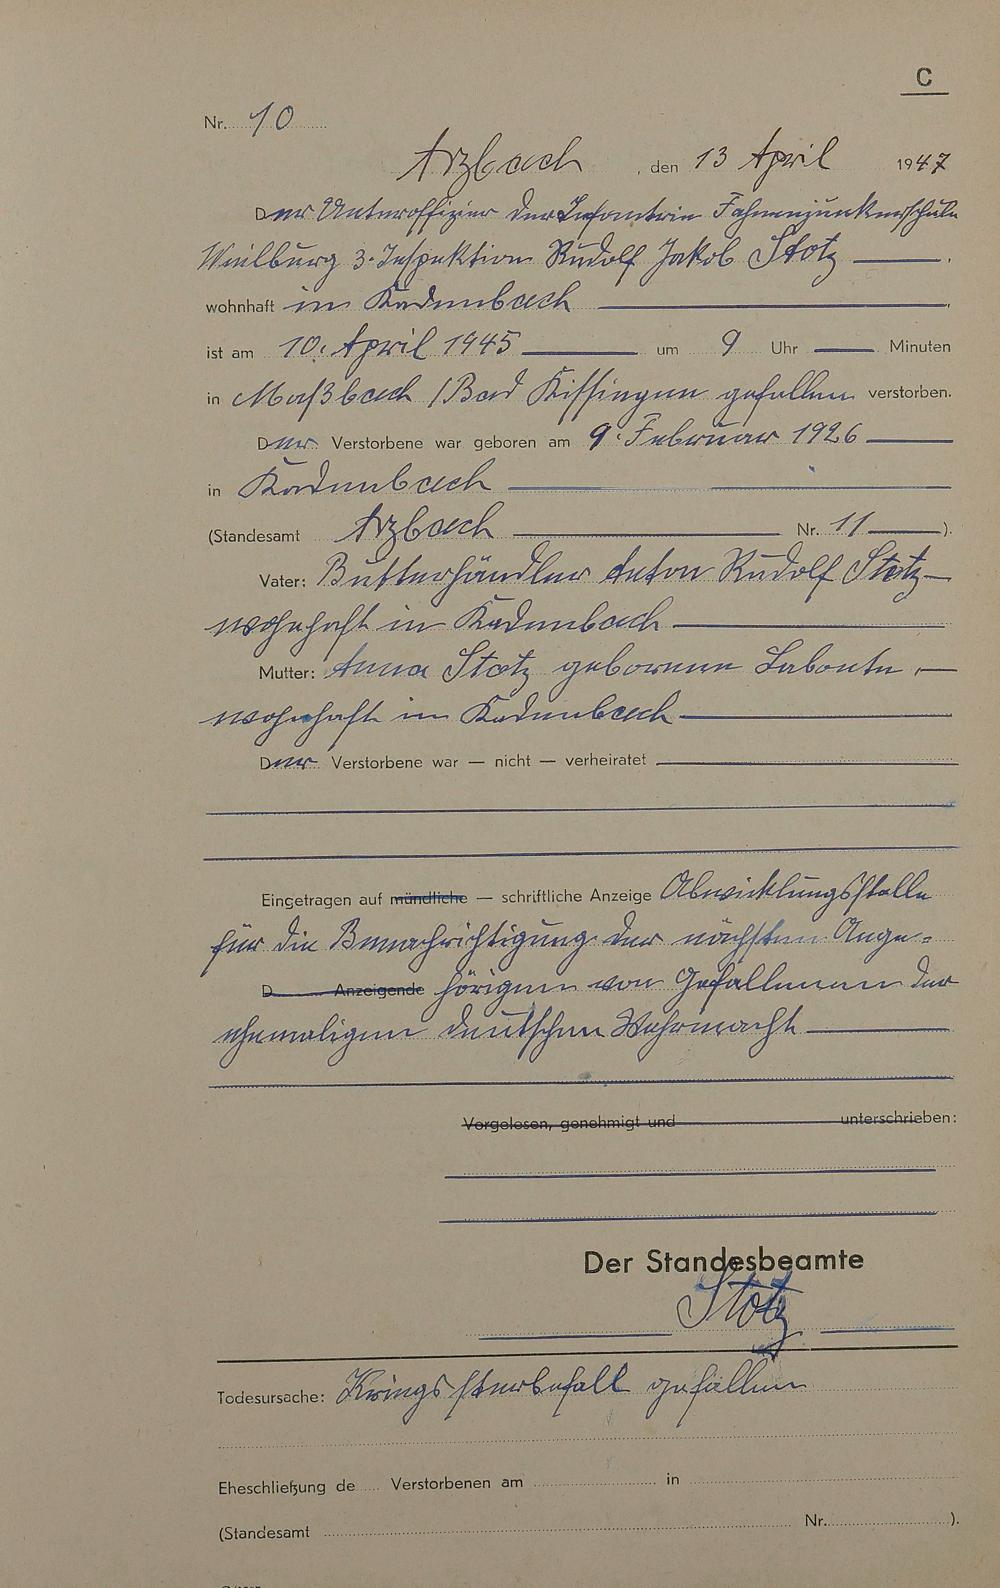 C
Nr. 10
Arzbach, den 13 April 1947
Der Unteroffizier der Infanterie Fahnenjunkerschule
Weilburg 3. Inspektion Rudolf Jakob Stotz
wohnhaft in Kadenbach
ist am 10. April 1945 um 9 Uhr Minuten
in Maßbach / Bad Kissingen gefallen verstorben.
Der Verstorbene war geboren am 9. Februar 1926
in Kadenbach
(Standesamt Arzbach Nr. 11 ).
Vater: Butterhändler Anton Rudolf Stotz
wohnhaft in Kadenbach
Mutter: Anna Stotz geborene Labonte,
wohnhaft in Kadenbach
Der Verstorbene war — nicht — verheiratet
Eingetragen auf mündliche — schriftliche Anzeige Abwicklungsstelle
für die Benachrichtigung der nächsten Ange-
D Anzeigende hörigen von Gefallenen der
ehemaligen deutschen Wehrmacht
Vorgelesen, genehmigt und unterschrieben:
Der Standesbeamte
Stotz
Todesursache: Kriegssterbefall gefallen
Eheschließung de Verstorbenen am in
(Standesamt Nr. ).